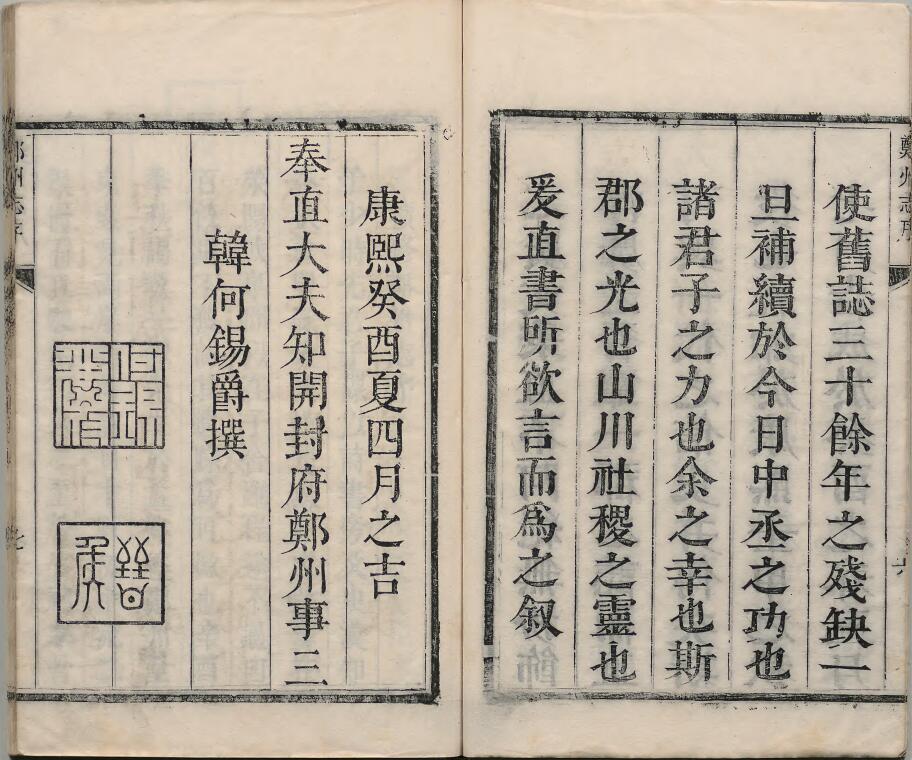 鄭州志序
使舊誌三十餘年之殘缺一
旦補續於今日中丞之功也
諸君子之力也余之幸也斯
郡之光也山川社稷之靈也
爰直書所欲言而爲之叙
康熙癸酉夏四月之吉
奉直大夫知開封府鄭州事三
韓何錫爵撰
晉侯